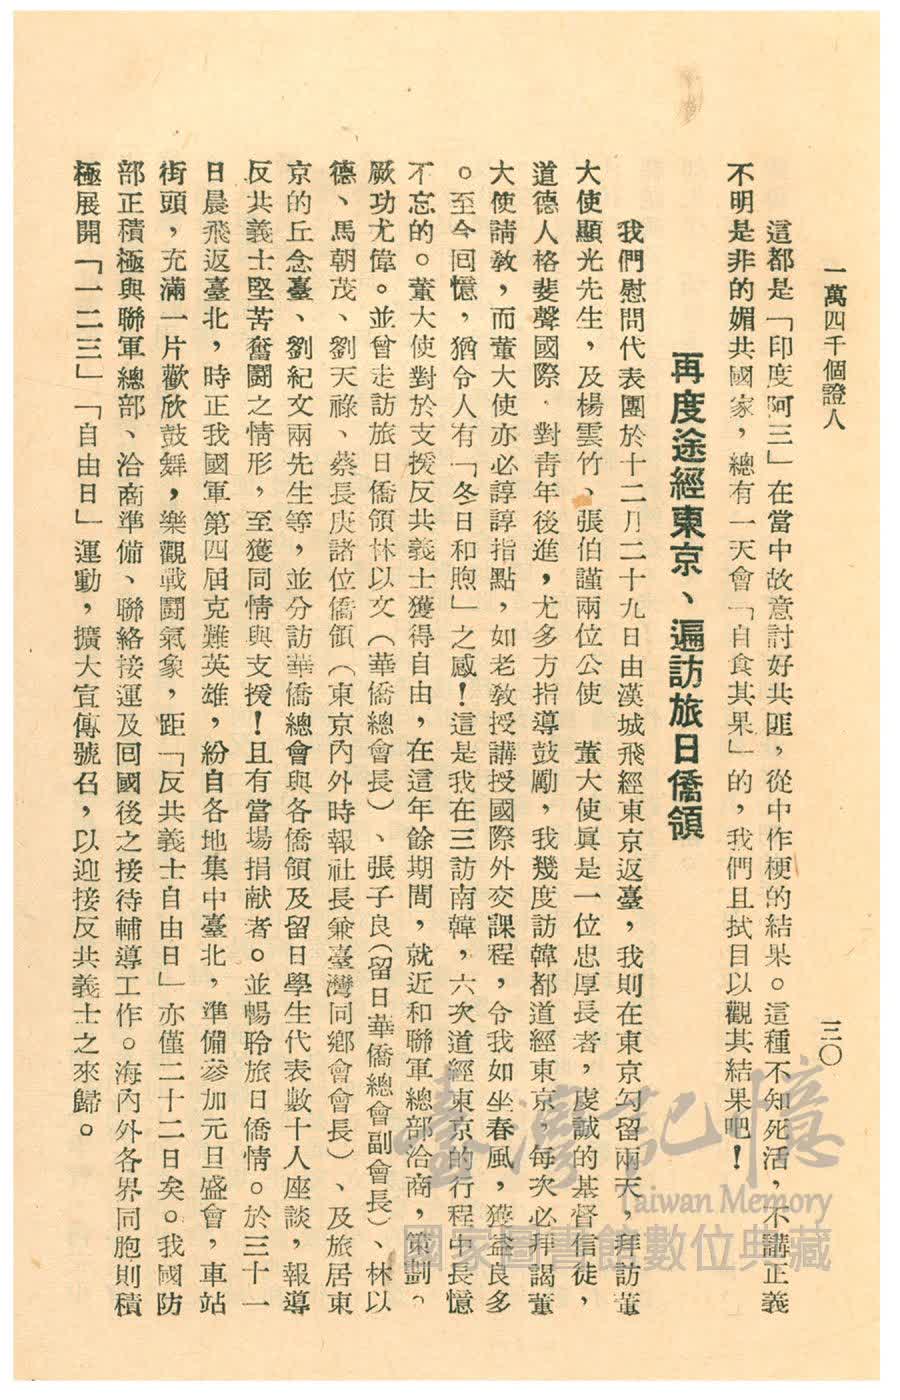 一萬四千個證人
三〇
這都是「印度阿三」在當中故意討好共匪，從中作梗的結果。這種不知死活，不講正義
不明是非的媚共國家，總有一天會「自食其果」的，我們且拭目以觀其結果吧！
再度途經東京、遍訪旅日僑領
我們慰問代表團於十二月二十九日由漢城飛經東京返臺，我則在東京勾留兩天，拜訪董
大使顯光先生，及楊雲竹、張伯謹兩位公使　董大使眞是一位忠厚長者，虔誠的基督信徒，
道德人格斐聲國際．對靑年後進，尤多方指導鼓勵，我幾度訪韓都道經東京，每次必拜謁董
大使請敎，而董大使亦必諄諄指點，如老敎授講授國際外交課程，令我如坐春風，獲益良多
。至今囘憶，猶令人有「冬日和煦」之感！這是我在三訪南韓，六次道經東京的行程中長憶
不忘的。董大使對於支援反共義士獲得自由，在這年餘期間，就近和聯軍總部洽商，策劃，
厥功尤偉。並曾走訪旅日僑領林以文（華僑總會長）、張子良（留日華僑總會副會長）、林以
德、馬朝茂、劉天祿、蔡長庚諸位僑領（東京內外時報社長兼臺灣同鄉會會長）、及旅居東
京的丘念臺、劉紀文兩先生等，並分訪華僑總會與各僑領及留日學生代表數十人座談，報導
反共義士堅苦奮鬪之情形，至獲同情與支援！且有當場捐献者。並暢聆旅日僑情。於三十一
日晨飛返臺北，時正我國軍第四屆克難英雄，紛自各地集中臺北，準備參加元旦盛會，車站
街頭，充滿一片歡欣鼓舞，樂觀戰鬪氣象，距「反共義士自由日」亦僅二十二日矣。我國防
部正積極與聯軍總部、洽商準備、聯絡接運及囘國後之接待輔導工作。海內外各界同胞則積
極展開「一二三」「自由日」運動，擴大宣傳號召，以迎接反共義士之來歸。
臺灣記憶
Taiwan Memory
國家圖書館數位典藏